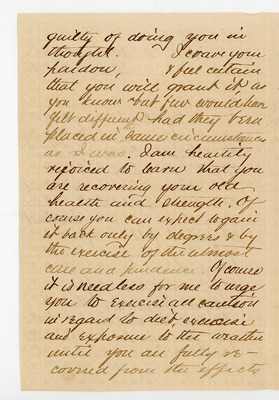 guilty of doing you in
thought. I crave your
pardon, & feel certain
that you will grant it as
you know but few would have
felt different had they been
placed in same circumstances
as I was. I am heartily
rejoiced to learn that you
are recovering your old
health and strength. Of
course you can expect to gain
it back only by degrees & by
the exercise of the utmost
care and prudence. Of course
it is needless for me to urge
you to exercise all caution
in regard to diet, exercise
and exposure to the weather
until you are fully re-
covered from the effects